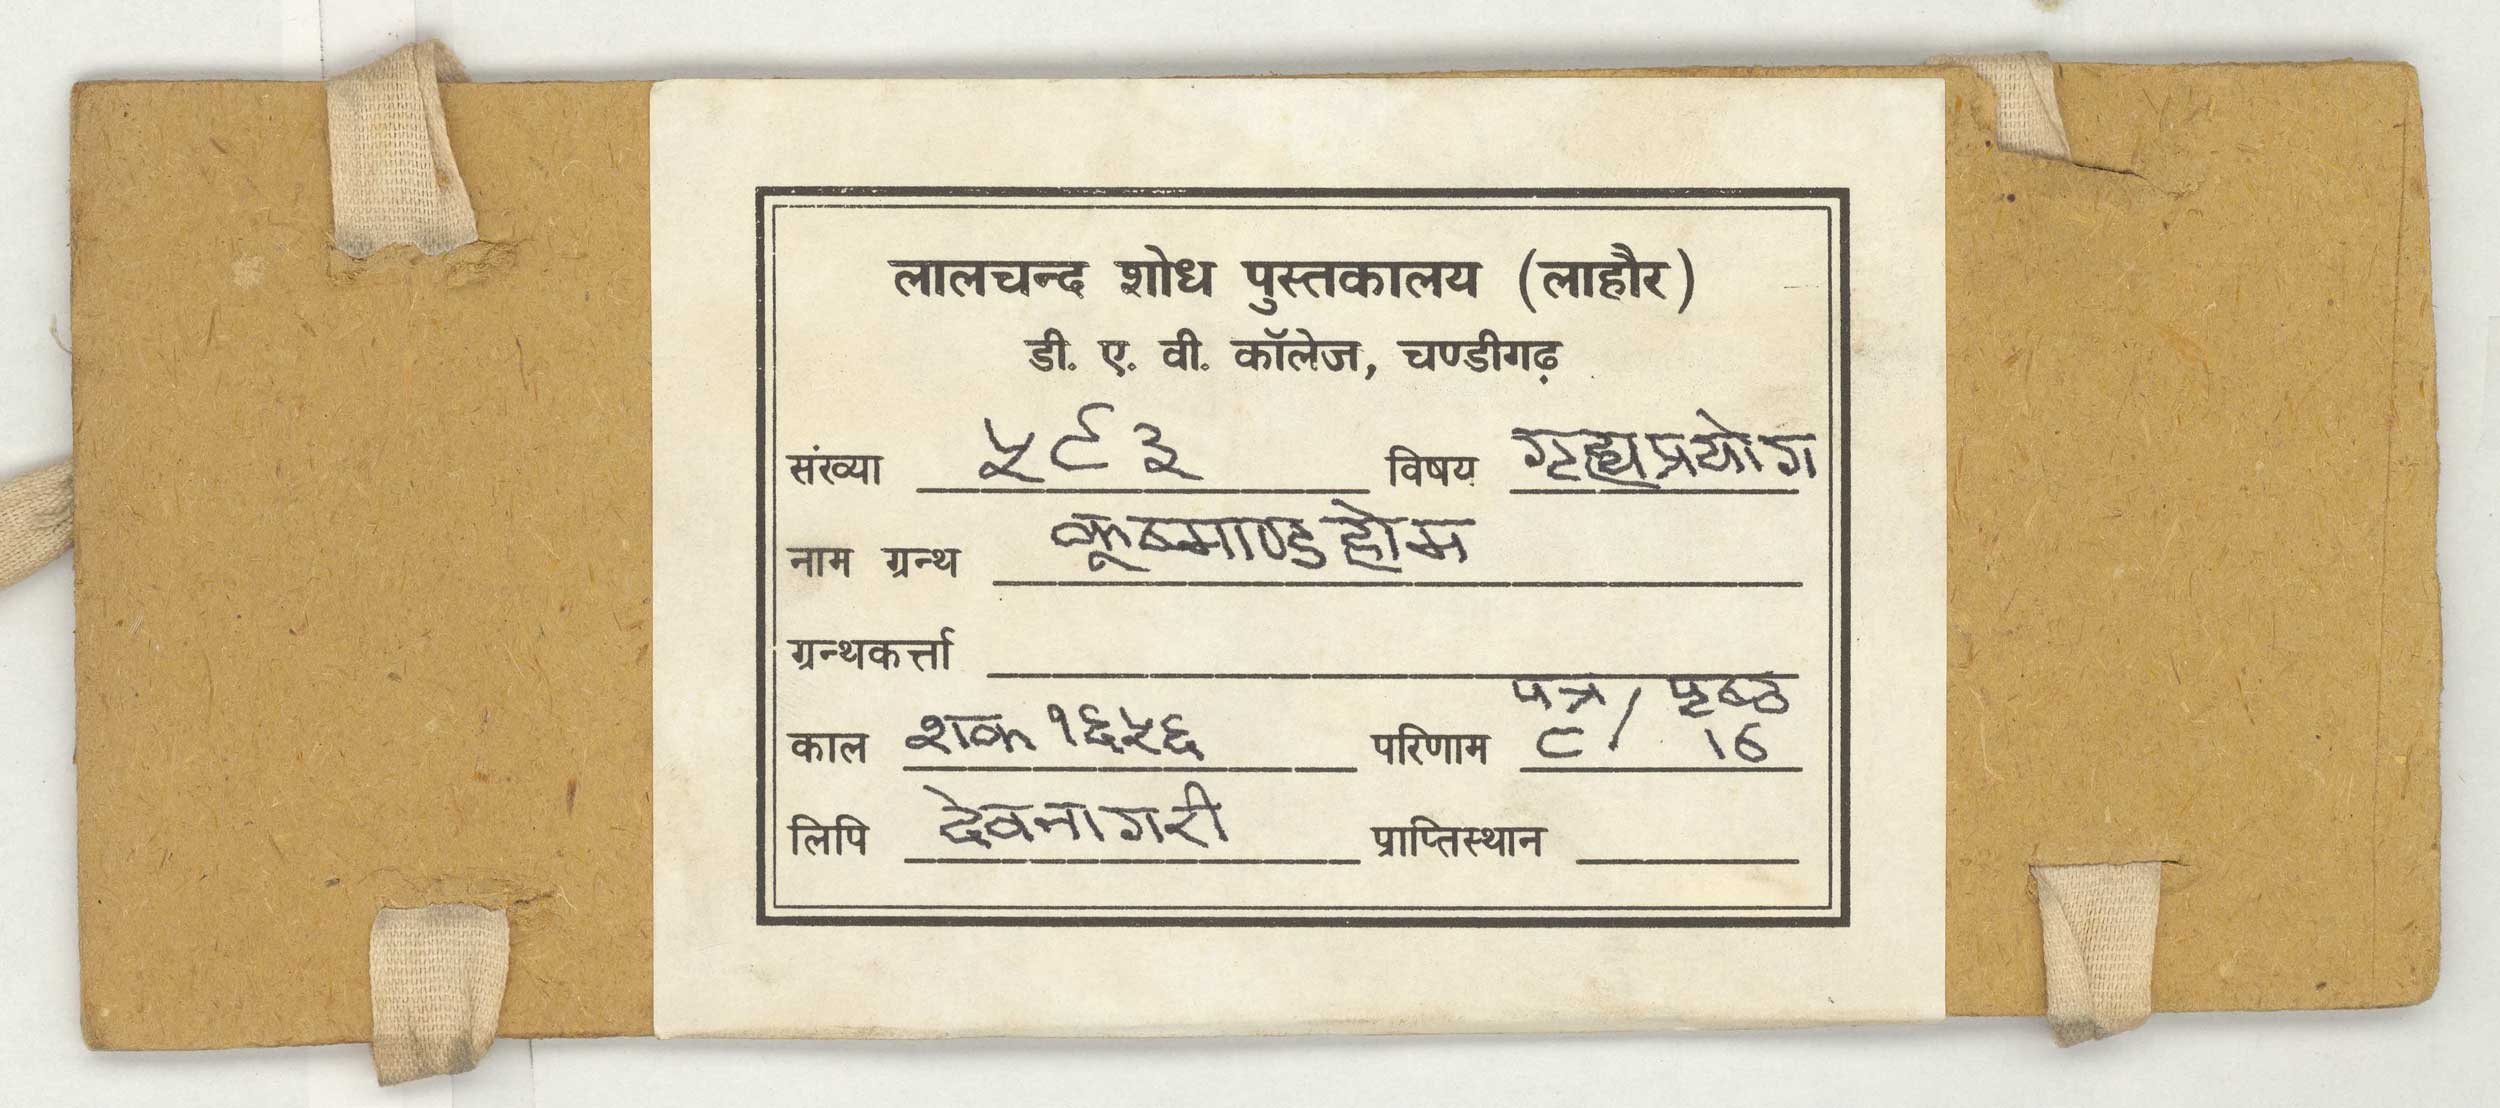 लालचन्द शोध पुस्तकालय (लाहौर)
डी. ए. वी. कॉलेज, चण्डीगढ़
संख्या ५९३ विषय गृह्यप्रयोग
नाम ग्रन्थ कूष्माण्ड होम
ग्रन्थकर्त्ता
पत्र / पृष्ठ
काल शक १६५६ परिणाम ८ / 16
लिपि देवनागरी प्राप्तिस्थान